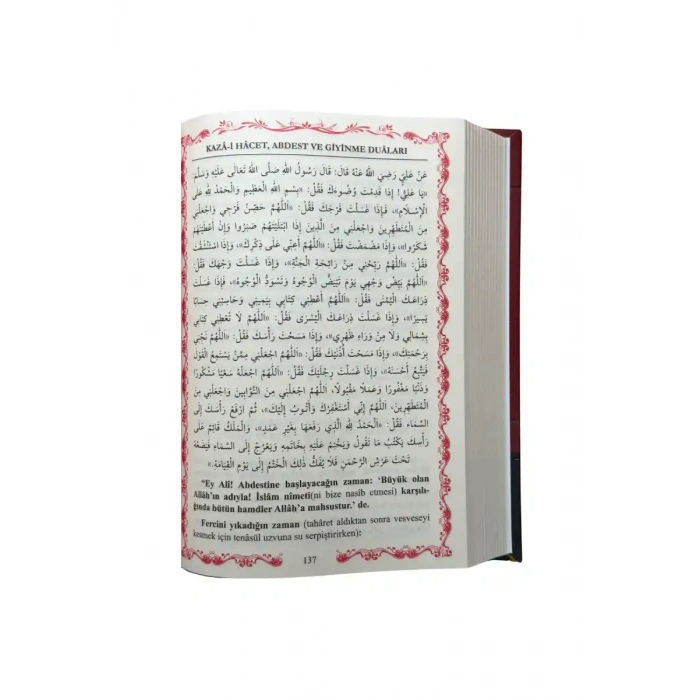 KAZÂ-İ HÂCET, ABDEST VE GİYİNME DUÂLARI
عَنْ عَلِيٍّ رَضِيَ اللهُ عَنْهُ قَالَ: قَالَ رَسُولُ اللهِ صَلَّى اللهُ تَعَالَى عَلَيْهِ وَسَلَّمَ
«يَا عَلِيُّ! إِذَا قَدِمْتَ وُضُوءَكَ فَقُلْ: «بِسْمِ اللهِ الْعَظِيمِ وَالْحَمْدُ لِلهِ عَلَى
الْإِسْلَامِ»، فَإِذَا غَسَلْتَ فَرْجَكَ فَقُلْ: «اَللّٰهُمَّ حَصِّنْ فَرْجِي وَاجْعَلْنِي
مِنَ الْمُتَطَهِّرِينَ وَاجْعَلْنِي مِنَ الَّذِينَ إِذَا ابْتَلَيْتَهُمْ صَبَرُوا وَإِنْ أَعْطَيْتَهُمْ
شَكَرُوا»، وَإِذَا مَضْمَضْتَ فَقُلْ: «اَللّٰهُمَّ أَعِنِّي عَلَى ذِكْرِكَ»، وَإِذَا اسْتَنْشَقْتَ
فَقُلْ: «اَللّٰهُمَّ رَيِّحْنِي مِنْ رَائِحَةِ الْجَنَّةِ»، وَإِذَا غَسَلْتَ وَجْهَكَ فَقُلْ:
«اَللّٰهُمَّ بَيِّضْ وَجْهِي يَوْمَ تَبْيَضُّ الْوُجُوهُ وَتَسْوَدُّ الْوُجُوهُ»، فَإِذَا غَسَلْتَ
ذِرَاعَكَ الْيُمْنَى فَقُلْ: «اَللّٰهُمَّ أَعْطِنِي كِتَابِي بِيَمِينِي وَحَاسِبْنِي حِسَابًا
يَسِيرًا»، وَإِذَا غَسَلْتَ ذِرَاعَكَ الْيُسْرَى فَقُلْ: «اَللّٰهُمَّ لَا تُعْطِنِي كِتَابِي
بِشِمَالِي وَلَا مِنْ وَرَاءِ ظَهْرِي»، وَإِذَا مَسَحْتَ رَأْسَكَ فَقُلْ: «اَللّٰهُمَّ نَجِّنِي
بِرَحْمَتِكَ»، وَإِذَا مَسَحْتَ أُذُنَيْكَ فَقُلْ: «اَللّٰهُمَّ اجْعَلْنِي مِمَّنْ يَسْتَمِعُ الْقَوْلَ
فَيَتَّبِعُ أَحْسَنَهُ»، وَإِذَا غَسَلْتَ رِجْلَيْكَ فَقُلْ: «اَللّٰهُمَّ اجْعَلْهُ سَعْيًا مَشْكُورًا
وَذَنْبًا مَغْفُورًا وَعَمَلًا مَقْبُولًا، اَللّٰهُمَّ اجْعَلْنِي مِنَ التَّوَّابِينَ وَاجْعَلْنِي مِنَ
الْمُتَطَهِّرِينَ، اَللّٰهُمَّ إِنِّي أَسْتَغْفِرُكَ وَأَتُوبُ إِلَيْكَ»، ثُمَّ ارْفَعْ رَأْسَكَ إِلَى
السَّمَاءِ فَقُلْ: «اَلْحَمْدُ لِلهِ الَّذِي رَفَعَهَا بِغَيْرِ عَمَدٍ»، وَالْمَلَكُ قَائِمٌ عَلَى
رَأْسِكَ يَكْتُبُ مَا تَقُولُ وَيَخْتِمُ عَلَيْهِ بِخَاتَمِهِ وَيَعْرُجُ إِلَى السَّمَاءِ فَيَضَعُهُ
تَحْتَ عَرْشِ الرَّحْمٰنِ فَلَا يُفَكُّ ذٰلِكَ الْخَتْمُ إِلَى يَوْمِ الْقِيَامَةِ.»
“Ey Ali! Abdestine başlayacağın zaman: ‘Büyük olan
Allâh’ın adıyla! İslâm nîmeti(ni bize nasîb etmesi) karşılı-
ğında bütün hamdler Allâh’a mahsustur.’ de.
Fercini yıkadığın zaman (tahâret aldıktan sonra vesveseyi
kesmek için tenâsül uzvuna su serpiştirirken):
137